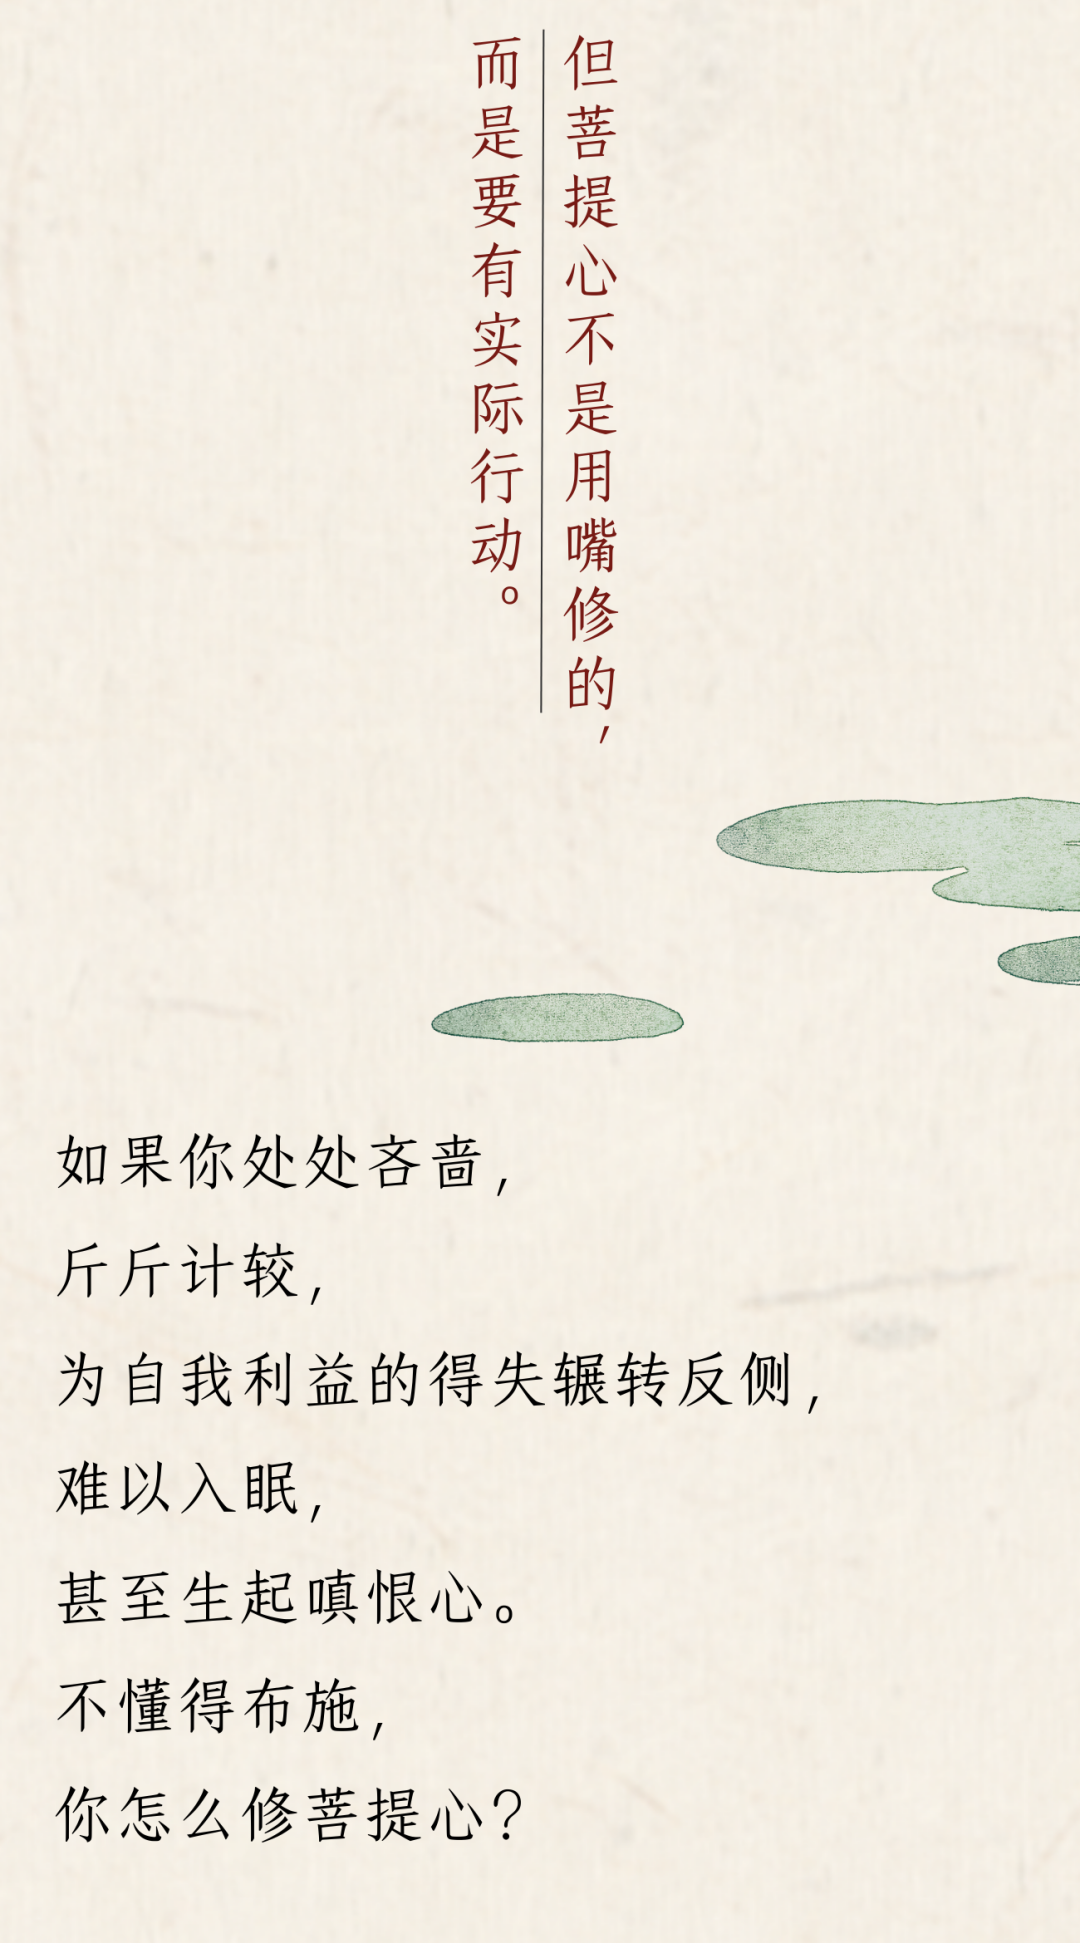 但菩提心不是用嘴修的，
而是要有实际行动。
如果你处处吝啬，
斤斤计较，
为自我利益的得失辗转反侧，
难以入眠，
甚至生起嗔恨心。
不懂得布施，
你怎么修菩提心？